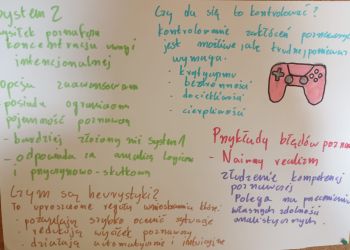 System 2
wysiłek poznawczy
koncentracja uwagi
intencjonalnej
posiada ograniczoną
pojemność poznawczą
- bardziej złożony niż system 1
- odpowiada za analizę logiczną
przyczynowo-skutkową
Czym są heurystyki?
To uproszczone reguły wnioskowania które:
pozwalają szybko ocenić sytuację
redukują wysiłek poznawczy
działają automatycznie i
Czy da się to kontrolować?
kontrolowanie zakłóceń poznawczych
jest możliwe, ale trudne, ponieważ
wymaga:
- krytycyzmu
- bezstronności
- dociekliwości
- cierpliwości
Przykłady błędów
- Naiwny realizm
złudzenie kompetencji
poznawczej
Polega na
własnych zdolności